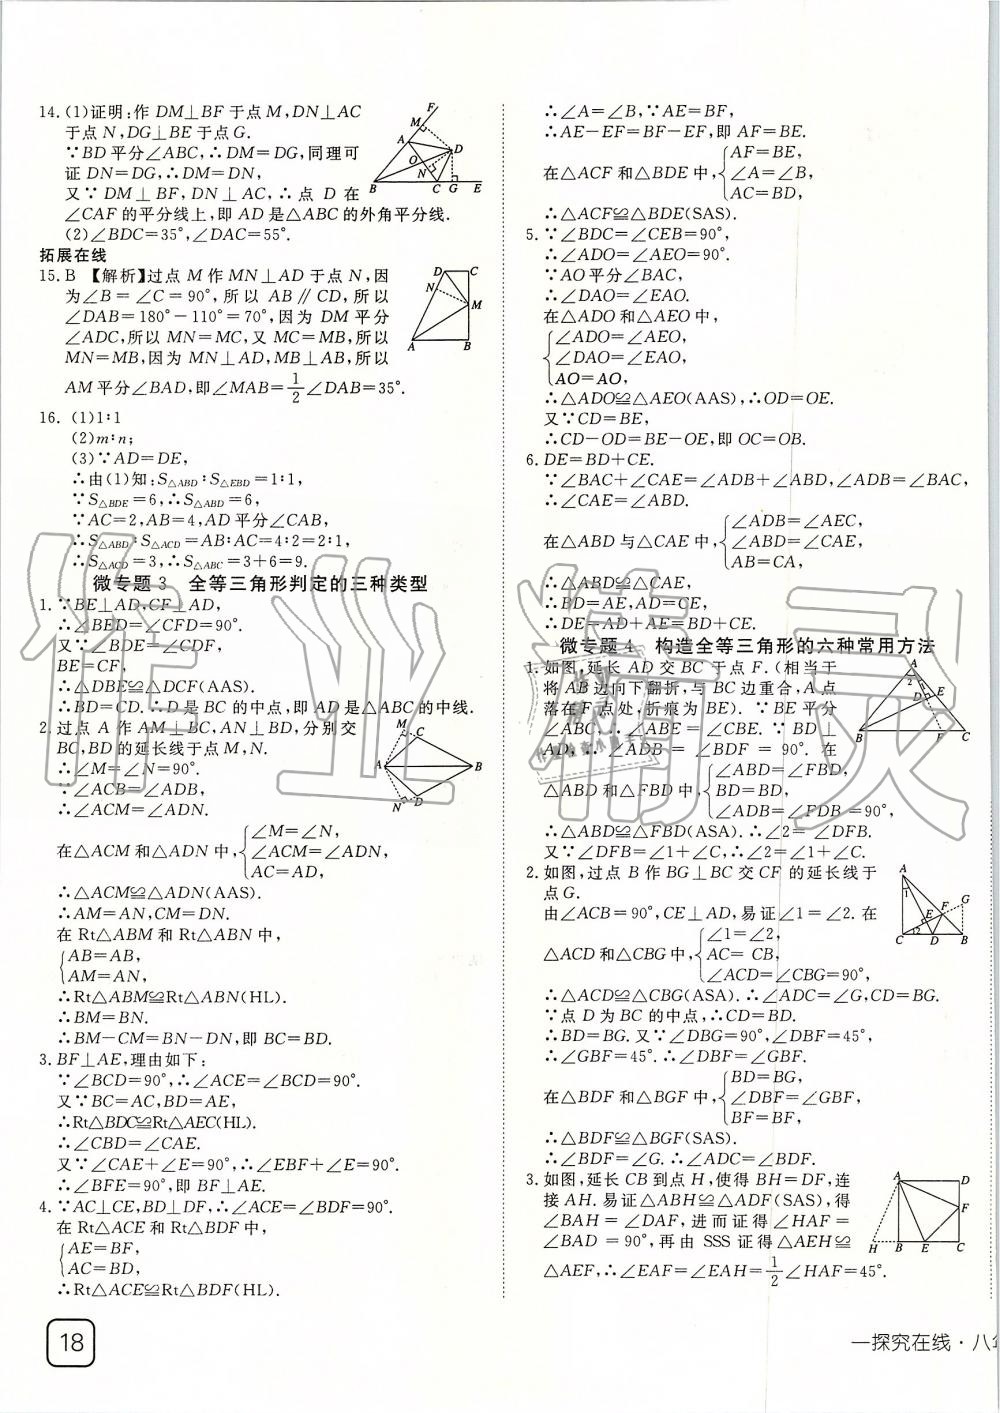 14. (1)证明:作 DM⊥BF 于点 M,DN⊥AC
于点 N,DG⊥BE 于点 G.
∵BD 平分∠ABC,∴DM=DG,同理可
证 DN=DG,∴DM=DN,
又∵ DM⊥BF, DN⊥AC, ∴ 点 D 在
∠CAF 的平分线上,即 AD 是△ABC 的外角平分线.
(2)∠BDC=35°,∠DAC=55°.
拓展在线
15. B 【解析】过点 M 作 MN⊥AD 于点 N,因
为∠B=∠C=90°,所以 AB∥CD,所以
∠DAB=180°-110°=70°,因为 DM 平分
∠ADC,所以 MN=MC,又 MC=MB,所以
MN=MB,因为 MN⊥AD,MB⊥AB,所以
AM 平分∠BAD,即∠MAB=1/2∠DAB=35°.
16. (1)1∶1
(2)m∶n;
(3)∵AD=DE,
∴由(1)知:S△ABD∶S△EBD=1∶1,
∵S△BDE=6,∴S△ABD=6,
∵AC=2,AB=4,AD 平分∠CAB,
∴S△ABD∶S△ACD=AB∶AC=4∶2=2∶1,
∴S△ACD=3,∴S△ABC=3+6=9.
微专题 3 全等三角形判定的三种类型
1. ∵BE⊥AD,CF⊥AD,
∴∠BED=∠CFD=90°.
又∵∠BDE=∠CDF,
BE=CF,
∴△DBE≌△DCF(AAS).
∴BD=CD.∴D 是 BC 的中点,即 AD 是△ABC 的中线.
2. 过点 A 作 AM⊥BC,AN⊥BD,分别交
BC,BD 的延长线于点 M,N.
∴∠M=∠N=90°.
∵∠ACB=∠ADB,
∴∠ACM=∠ADN.
在△ACM 和△ADN 中,{∠M=∠N,
∠ACM=∠ADN,
AC=AD,
∴△ACM≌△ADN(AAS).
∴AM=AN,CM=DN.
在 Rt△ABM 和 Rt△ABN 中,
{AB=AB,
AM=AN,
∴Rt△ABM≌Rt△ABN(HL).
∴BM=BN.
∴BM-CM=BN-DN,即 BC=BD.
3. BF⊥AE,理由如下:
∵∠BCD=90°,∴∠ACE=∠BCD=90°.
又∵BC=AC,BD=AE,
∴Rt△BDC≌Rt△AEC(HL).
∴∠CBD=∠CAE.
又∵∠CAE+∠E=90°,∴∠EBF+∠E=90°.
∴∠BFE=90°,即 BF⊥AE.
4. ∵AC⊥CE,BD⊥DF,∴∠ACE=∠BDF=90°.
在 Rt△ACE 和 Rt△BDF 中,
{AE=BF,
AC=BD,
∴Rt△ACE≌Rt△BDF(HL).
18
∴∠A=∠B,∵AE=BF,
∴AE-EF=BF-EF,即 AF=BE.
在△ACF 和△BDE 中,{AF=BE,
∠A=∠B,
AC=BD,
∴△ACF≌△BDE(SAS).
5. ∵∠BDC=∠CEB=90°,
∴∠ADO=∠AEO=90°.
∵AO 平分∠BAC,
∴∠DAO=∠EAO.
在△ADO 和△AEO 中,
{∠ADO=∠AEO,
∠DAO=∠EAO,
AO=AO,
∴△ADO≌△AEO(AAS),∴OD=OE.
又∵CD=BE,
∴CD-OD=BE-OE,即 OC=OB.
6. DE=BD+CE.
∵∠BAC+∠CAE=∠ADB+∠ABD,∠ADB=∠BAC,
∴∠CAE=∠ABD.
在△ABD 与△CAE 中,{∠ADB=∠AEC,
∠ABD=∠CAE,
AB=CA,
∴△ABD≌△CAE.
∴BD=AE,AD=CE.
∴DE=AD+AE=BD+CE.
微专题 4 构造全等三角形的六种常用方法
1. 如图,延长 AD 交 BC 于点 F.(相当于
将 AB 边向下翻折,与 BC 边重合,A 点
落在 F 点处,折痕为 BE). ∵BE 平分
∠ABC, ∴∠ABE = ∠CBE. ∵ BD⊥
AD, ∴ ∠ADB = ∠BDF = 90°. 在
△ABD 和△FBD 中,{∠ABD=∠FBD,
BD=BD,
∠ADB=∠FDB=90°,
∴△ABD≌△FBD(ASA).∴∠2=∠DFB.
又∵∠DFB=∠1+∠C,∴∠2=∠1+∠C.
2. 如图,过点 B 作 BG⊥BC 交 CF 的延长线于
点 G.
由∠ACB=90°,CE⊥AD,易证∠1=∠2.在
△ACD 和△CBG 中,{∠1=∠2,
AC=CB,
∠ACD=∠CBG=90°,
∴△ACD≌△CBG(ASA).∴∠ADC=∠G,CD=BG.
∵点 D 为 BC 的中点,∴CD=BD.
∴BD=BG.又∵∠DBG=90°,∠DBF=45°,
∴∠GBF=45°.∴∠DBF=∠GBF.
在△BDF 和△BGF 中,{BD=BG,
∠DBF=∠GBF,
BF=BF,
∴△BDF≌△BGF(SAS).
∴∠BDF=∠G.∴∠ADC=∠BDF.
3. 如图,延长 CB 到点 H,使得 BH=DF,连
接 AH.易证△ABH≌△ADF(SAS),得
∠BAH=∠DAF,进而证得∠HAF=
∠BAD=90°,再由 SSS 证得△AEH≌
△AEF,∴∠EAF=∠EAH=1/2∠HAF=45°.
一探究在线·八
作业精灵